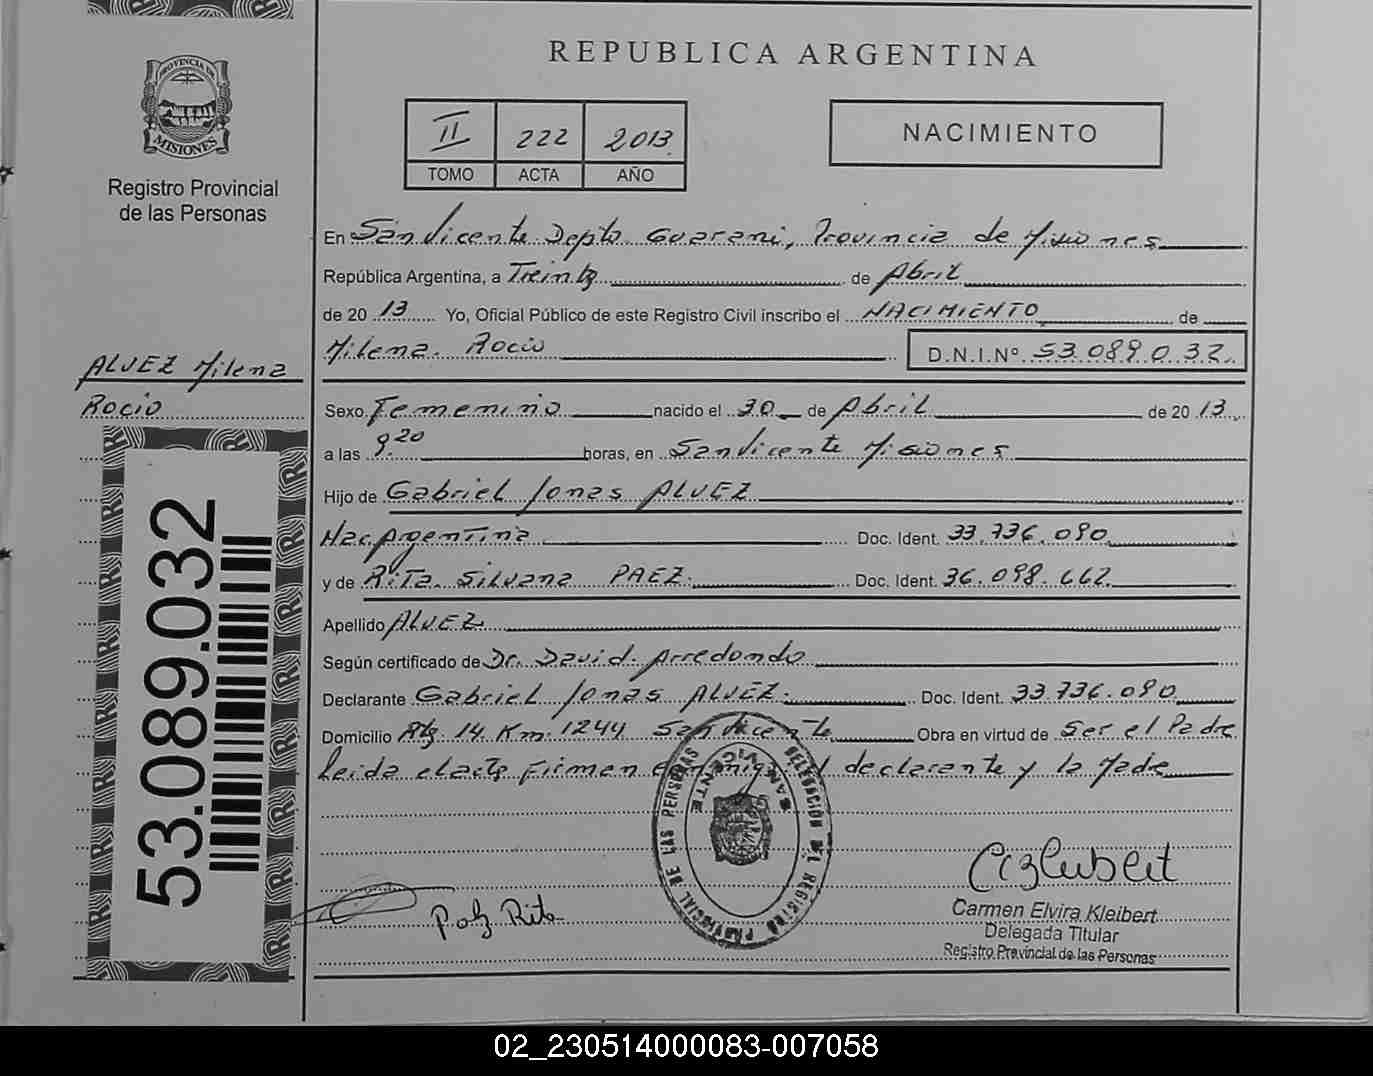 REPUBLICA ARGENTINA
PROVINCIA DE
MISIONES
Registro Provincial
de las Personas
II 222 2013
TOMO ACTA AÑO
NACIMIENTO
En San Vicente Depto. Guarani, Provincia de Misiones
República Argentina, a Treinta de Abril
de 20 13 Yo, Oficial Público de este Registro Civil inscribo el NACIMIENTO de
Milena Rocio D.N.I.Nº 53.089.032
ALVEZ Milena
Rocio
53.089.032
Sexo Femenino nacido el 30 de Abril de 20 13
a las 9.20 horas, en San Vicente Misiones
Hijo de Gabriel Jonas ALVEZ
Nac. Argentina Doc. Ident. 33.736.090
y de Rita Silvana PAEZ Doc. Ident. 36.098.662
Apellido ALVEZ
Según certificado de Dr. David Arredondo
Declarante Gabriel Jonas ALVEZ Doc. Ident. 33.736.090
Domicilio Rta 14 Km 1244 San Vicente Obra en virtud de Ser el Padre
Leida el acta firman conmigo el declarante y la Madre
DELEGACION DEL REGISTRO PROVINCIAL DE LAS PERSONAS
SAN VICENTE
Paez Rita
Carmen Elvira Kleibert
Delegada Titular
Registro Provincial de las Personas
02_230514000083-007058